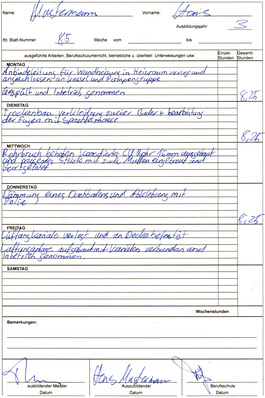 Name: Mustermann Vorname: Hans
Ausbildungsjahr: 3
lfd. Blatt-Nummer 85 Woche vom bis
ausgeführte Arbeiten, Berufsschulunterricht, betriebliche u. überbetr. Unterweisungen usw. Einzel-Stunden Gesamt-Stunden
MONTAG
Anbindeleitung für Wandheizung in Heizraum verlegt und
angeschlossen an Kessel und Pumpengruppe
Gespült und Inbetrieb genommen 8,25
DIENSTAG
Trockenbau verkleidung zweier Bäder + bearbeitung
der Fugen mit Spachtelmasse
8,25
MITTWOCH
Rohrbruch behoben
und passendes Stück mit zwei Muffen eingesetzt und
8,25
DONNERSTAG
Dämmung eines Dachbodens und Abklebung mit
Folie
8,25
FREITAG
Lüftungskanäle verlegt und an Decke befestigt
Lüftungsanlage aufgebaut mit Kanälen verbunden und
inbetrieb genommen.
SAMSTAG
Wochenstunden
Bemerkungen:
Hans Mustermann
ausbildender Meister Auszubildender Berufsschule
Datum Datum Datum